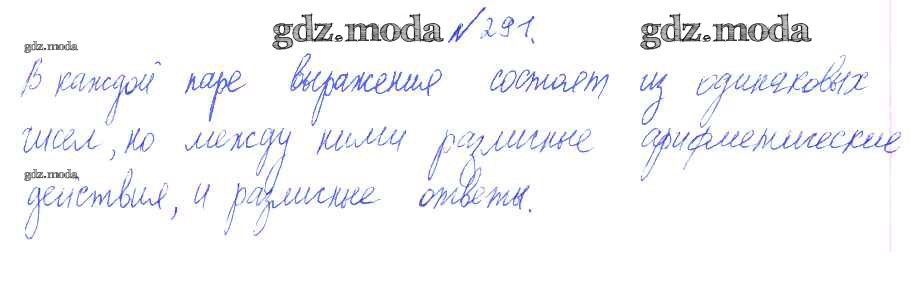 gdz.moda № 291. gdz.moda
gdz.moda
В каждой паре выражения состоят из одинаковых
чисел, но между ними различные арифметические
gdz.moda
действия, и различные ответы.